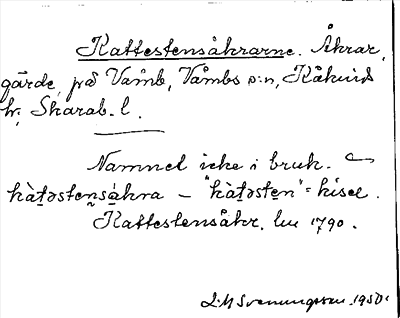 Kattestensåkrarne. Åkrar,
gärde, på Våmb, Våmbs s:n, Kåkinds
hr, Skarab. l.
Namnet icke i bruk.
kàt̲əstens̲åkra – "kàt̲əsten" = kisel.
Kattestensåkr. lu 1790.
1950.